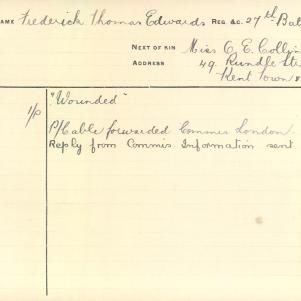 NAME Frederick Thomas Edwards REG. &C. 27th Bat
NEXT OF KIN Miss C. E. Collin
ADDRESS 49. Rundle St
Kent Town
"Wounded"
1/0 P/Cable forwarded Commis London
Reply from Commis Information sent